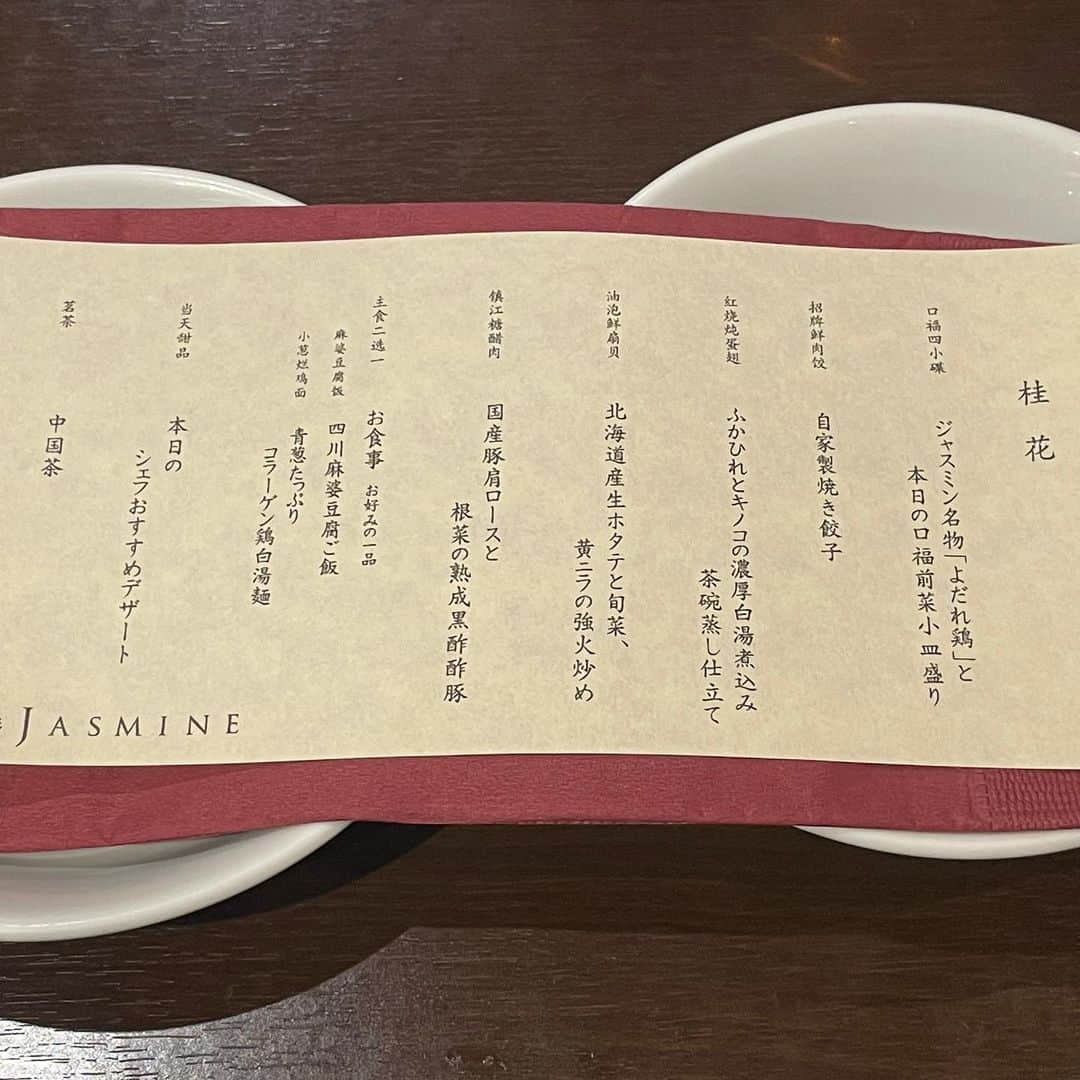 桂花
口福四小碟
ジャスミン名物「よだれ鶏」と
本日の口福前菜小皿盛り
招牌鲜肉饺
自家製焼き餃子
红烧炖蛋翅
ふかひれとキノコの濃厚白湯煮込み
茶碗蒸し仕立て
油泡鮮扇贝
北海道産生ホタテと旬菜、
黄ニラの強火炒め
鎮江糖醋肉
国産豚肩ロースと
根菜の熟成黒酢酢豚
主食二选一
お食事 お好みの一品
麻婆豆腐饭
四川麻婆豆腐ご飯
小葱烂鸡面
青葱たっぷり
コラーゲン鶏白湯麺
当天甜品
本日の
シェフおすすめデザート
茗茶
中国茶
JASMINE